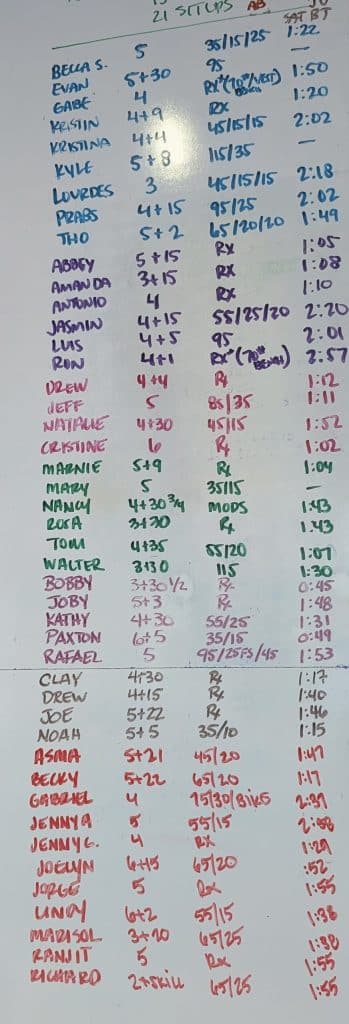 21 SITUPS AB
SAT BT
BELLA S. 5 35/15/25 1:22
EVAN 5+30 95 —
GABE 4 RX+(70#/VEST) BENCH 1:50
KRISTIN 4+9 RX 1:20
KRISTINA 4+4 45/15/15 2:02
KYLE 5+8 115/35 —
LOURDES 3 45/15/15 2:18
PRABS 4+15 95/25 2:02
THO 5+2 65/20/20 1:49
ABBEY 5+15 RX 1:05
AMANDA 3+15 RX 1:08
ANTONIO 4 RX 1:10
JASMIN 4+15 55/25/20 2:20
LUIS 4+5 95 2:01
RON 4+1 RX+(70# BENCH) 2:57
DREW 4+4 Rx 1:12
JEFF 5 85/35 1:11
NATALIE 4+30 45/15 1:52
CRISTINE 6 Rx 1:02
MARNIE 5+9 Rx 1:04
MARY 5 35/15 —
NANCY 4+30 3/4 MODS 1:43
ROSA 3+30 Rx 1:43
TOM 4+35 55/20 1:07
WALTER 3+30 115 1:30
BOBBY 3+30 1/2 Rx 0:45
JOBY 5+3 Rx 1:48
KATHY 4+30 55/25 1:31
PAXTON 6+5 35/15 0:49
RAFAEL 5 95/25FS/45 1:53
CLAY 4+30 Rx 1:17
DREW 4+15 Rx 1:40
JOE 5+22 Rx 1:46
NOAH 5+5 35/10 1:15
ASMA 5+21 45/20 1:47
BECKY 5+22 65/20 1:17
GABRIEL 4 75/30/BIKE 2:37
JENNY A 5 55/15 2:58
JENNY G. 4 RX 1:29
JOELYN 4+15 65/20 :52
JORGE 5 RX 1:55
LINDY 6+2 55/15 1:38
MARISOL 3+20 65/25 1:38
RANJIT 5 RX 1:55
RICHARD 2+SKILL 65/25 1:55